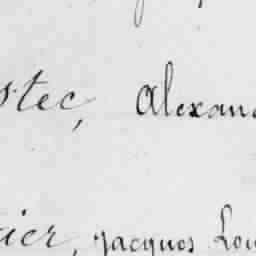 stec, Alexan
ier, Jacques Lou